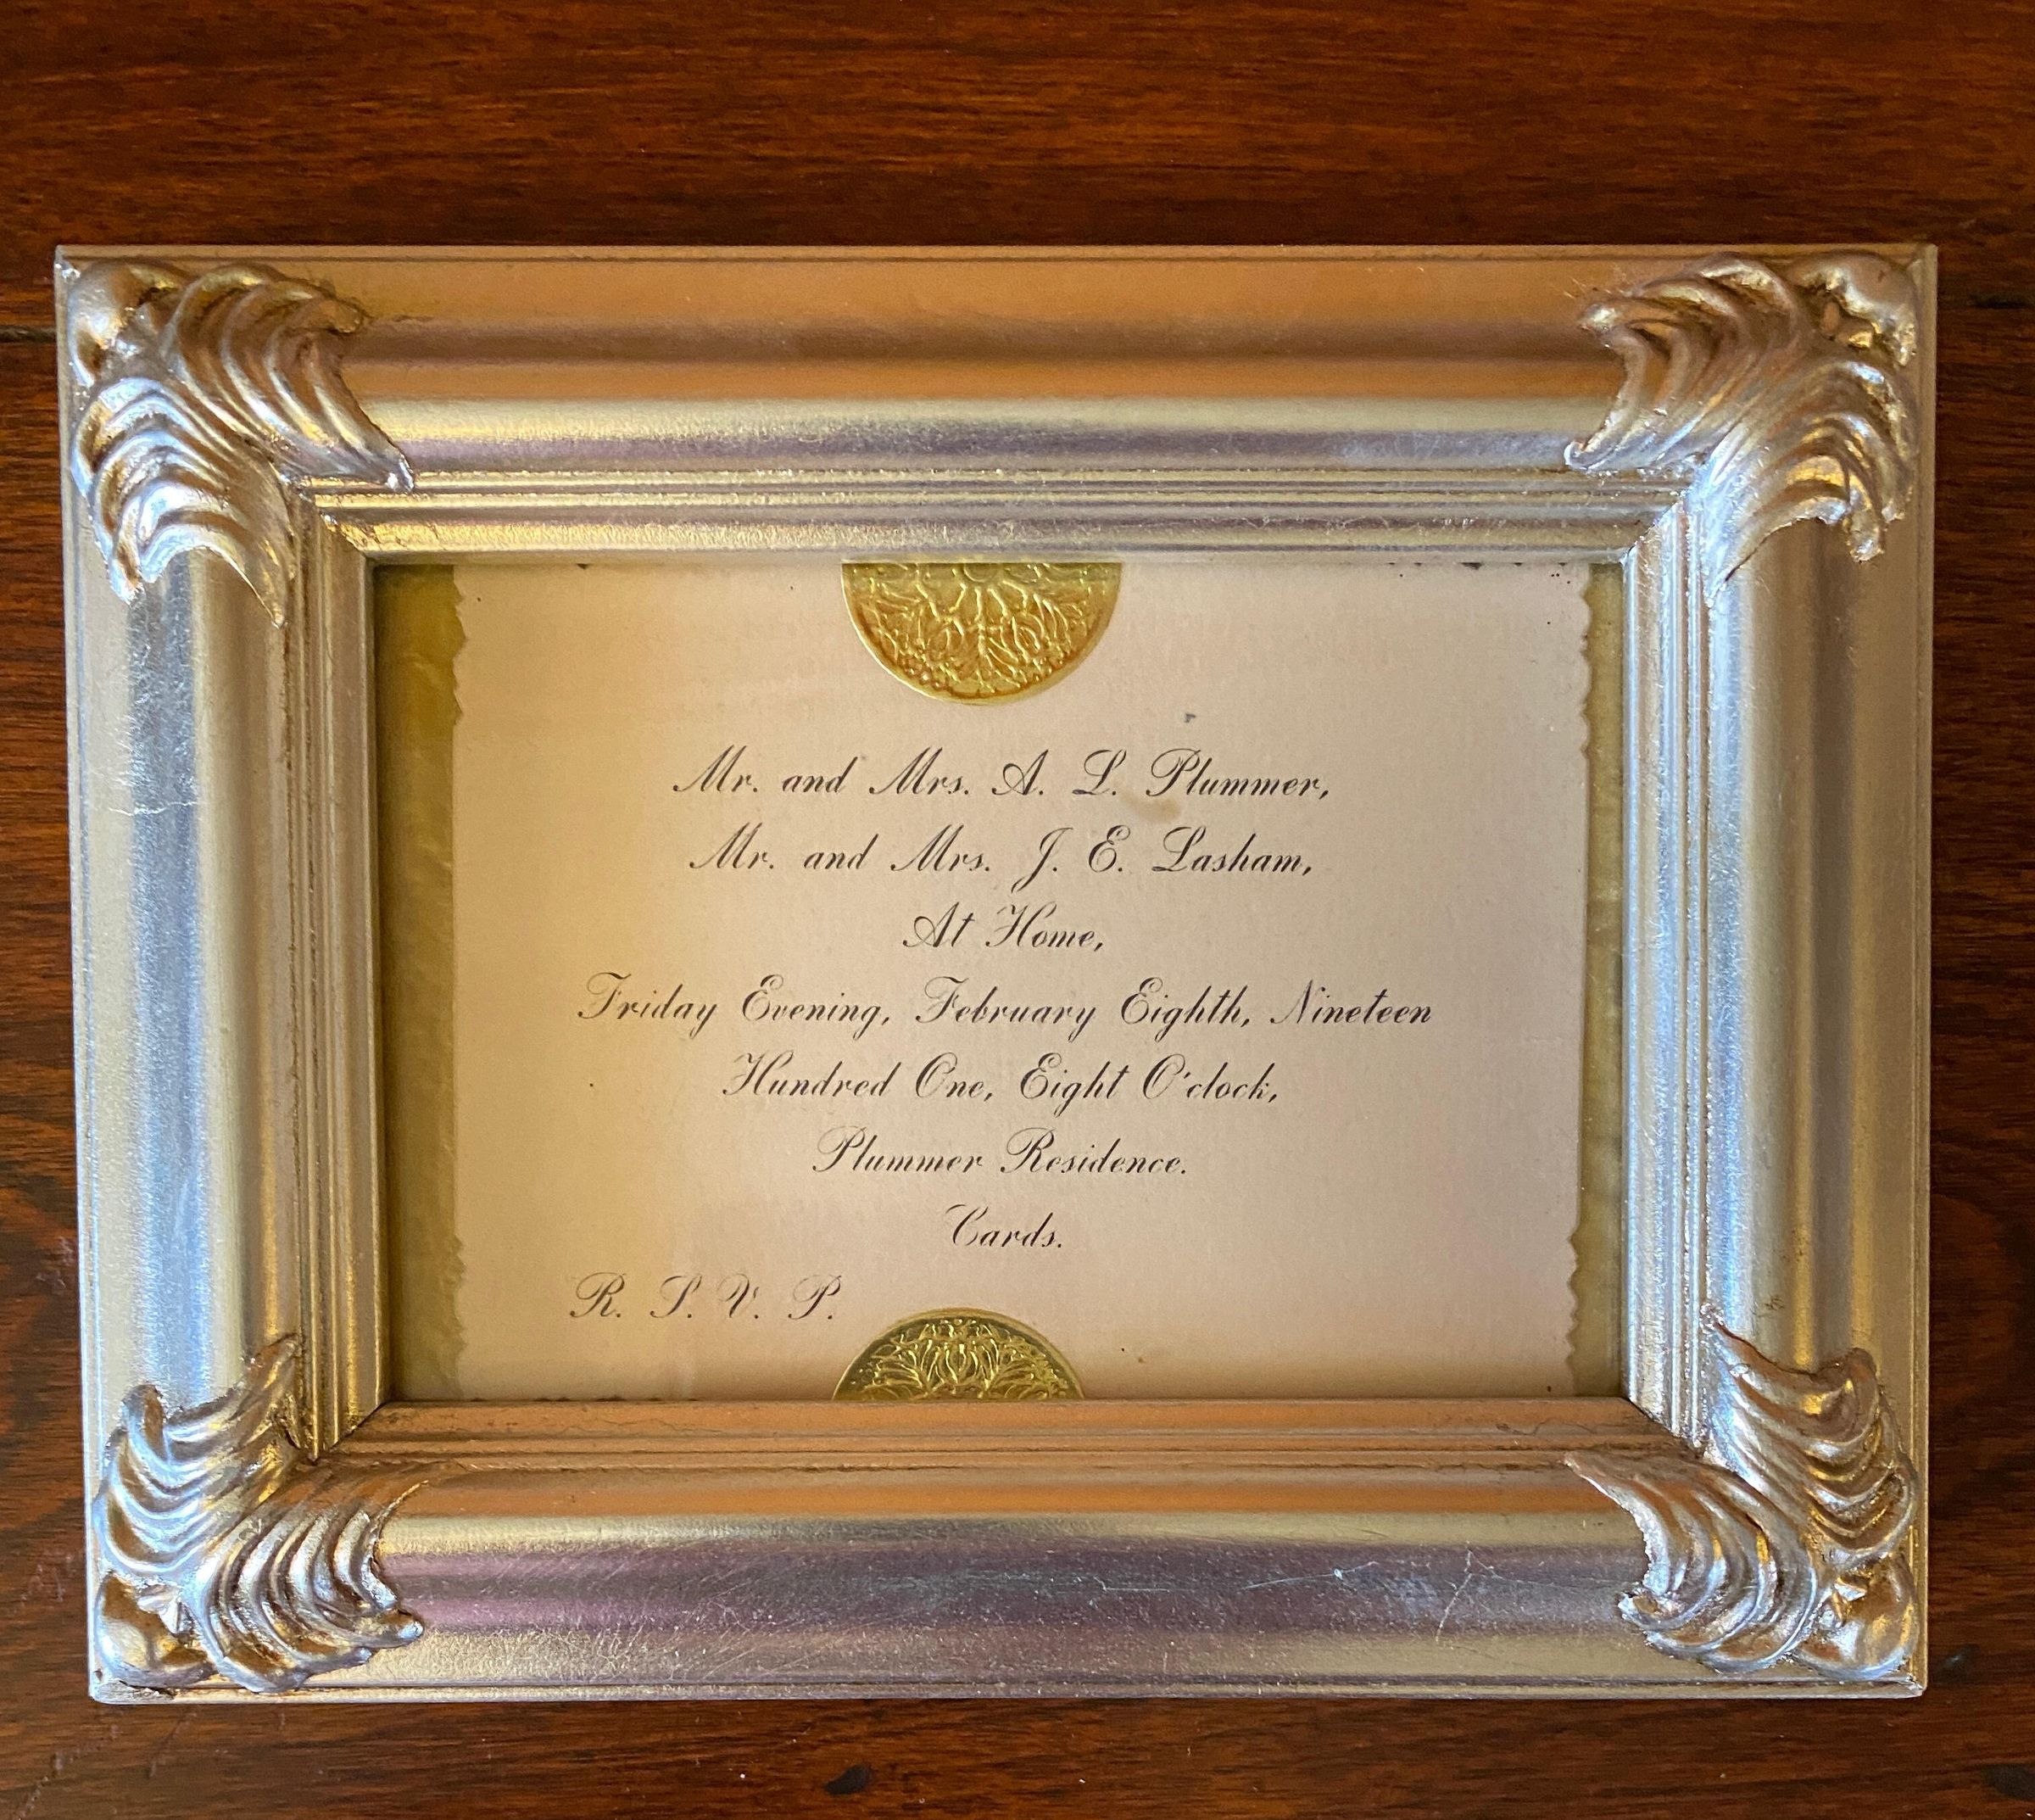 Mr. and Mrs. A. L. Plummer,
Mr. and Mrs. J. E. Lasham,
At Home,
Friday Evening, February Eighth, Nineteen
Hundred One, Eight O'clock,
Plummer Residence.
Cards.
R. S. V. P.